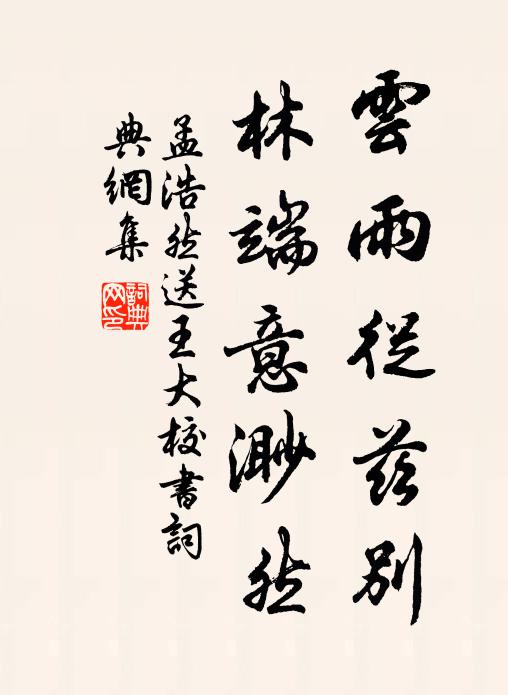 雲雨從茲別
林端意渺然
孟浩然送王大校書詞
典網集
詞典
网印